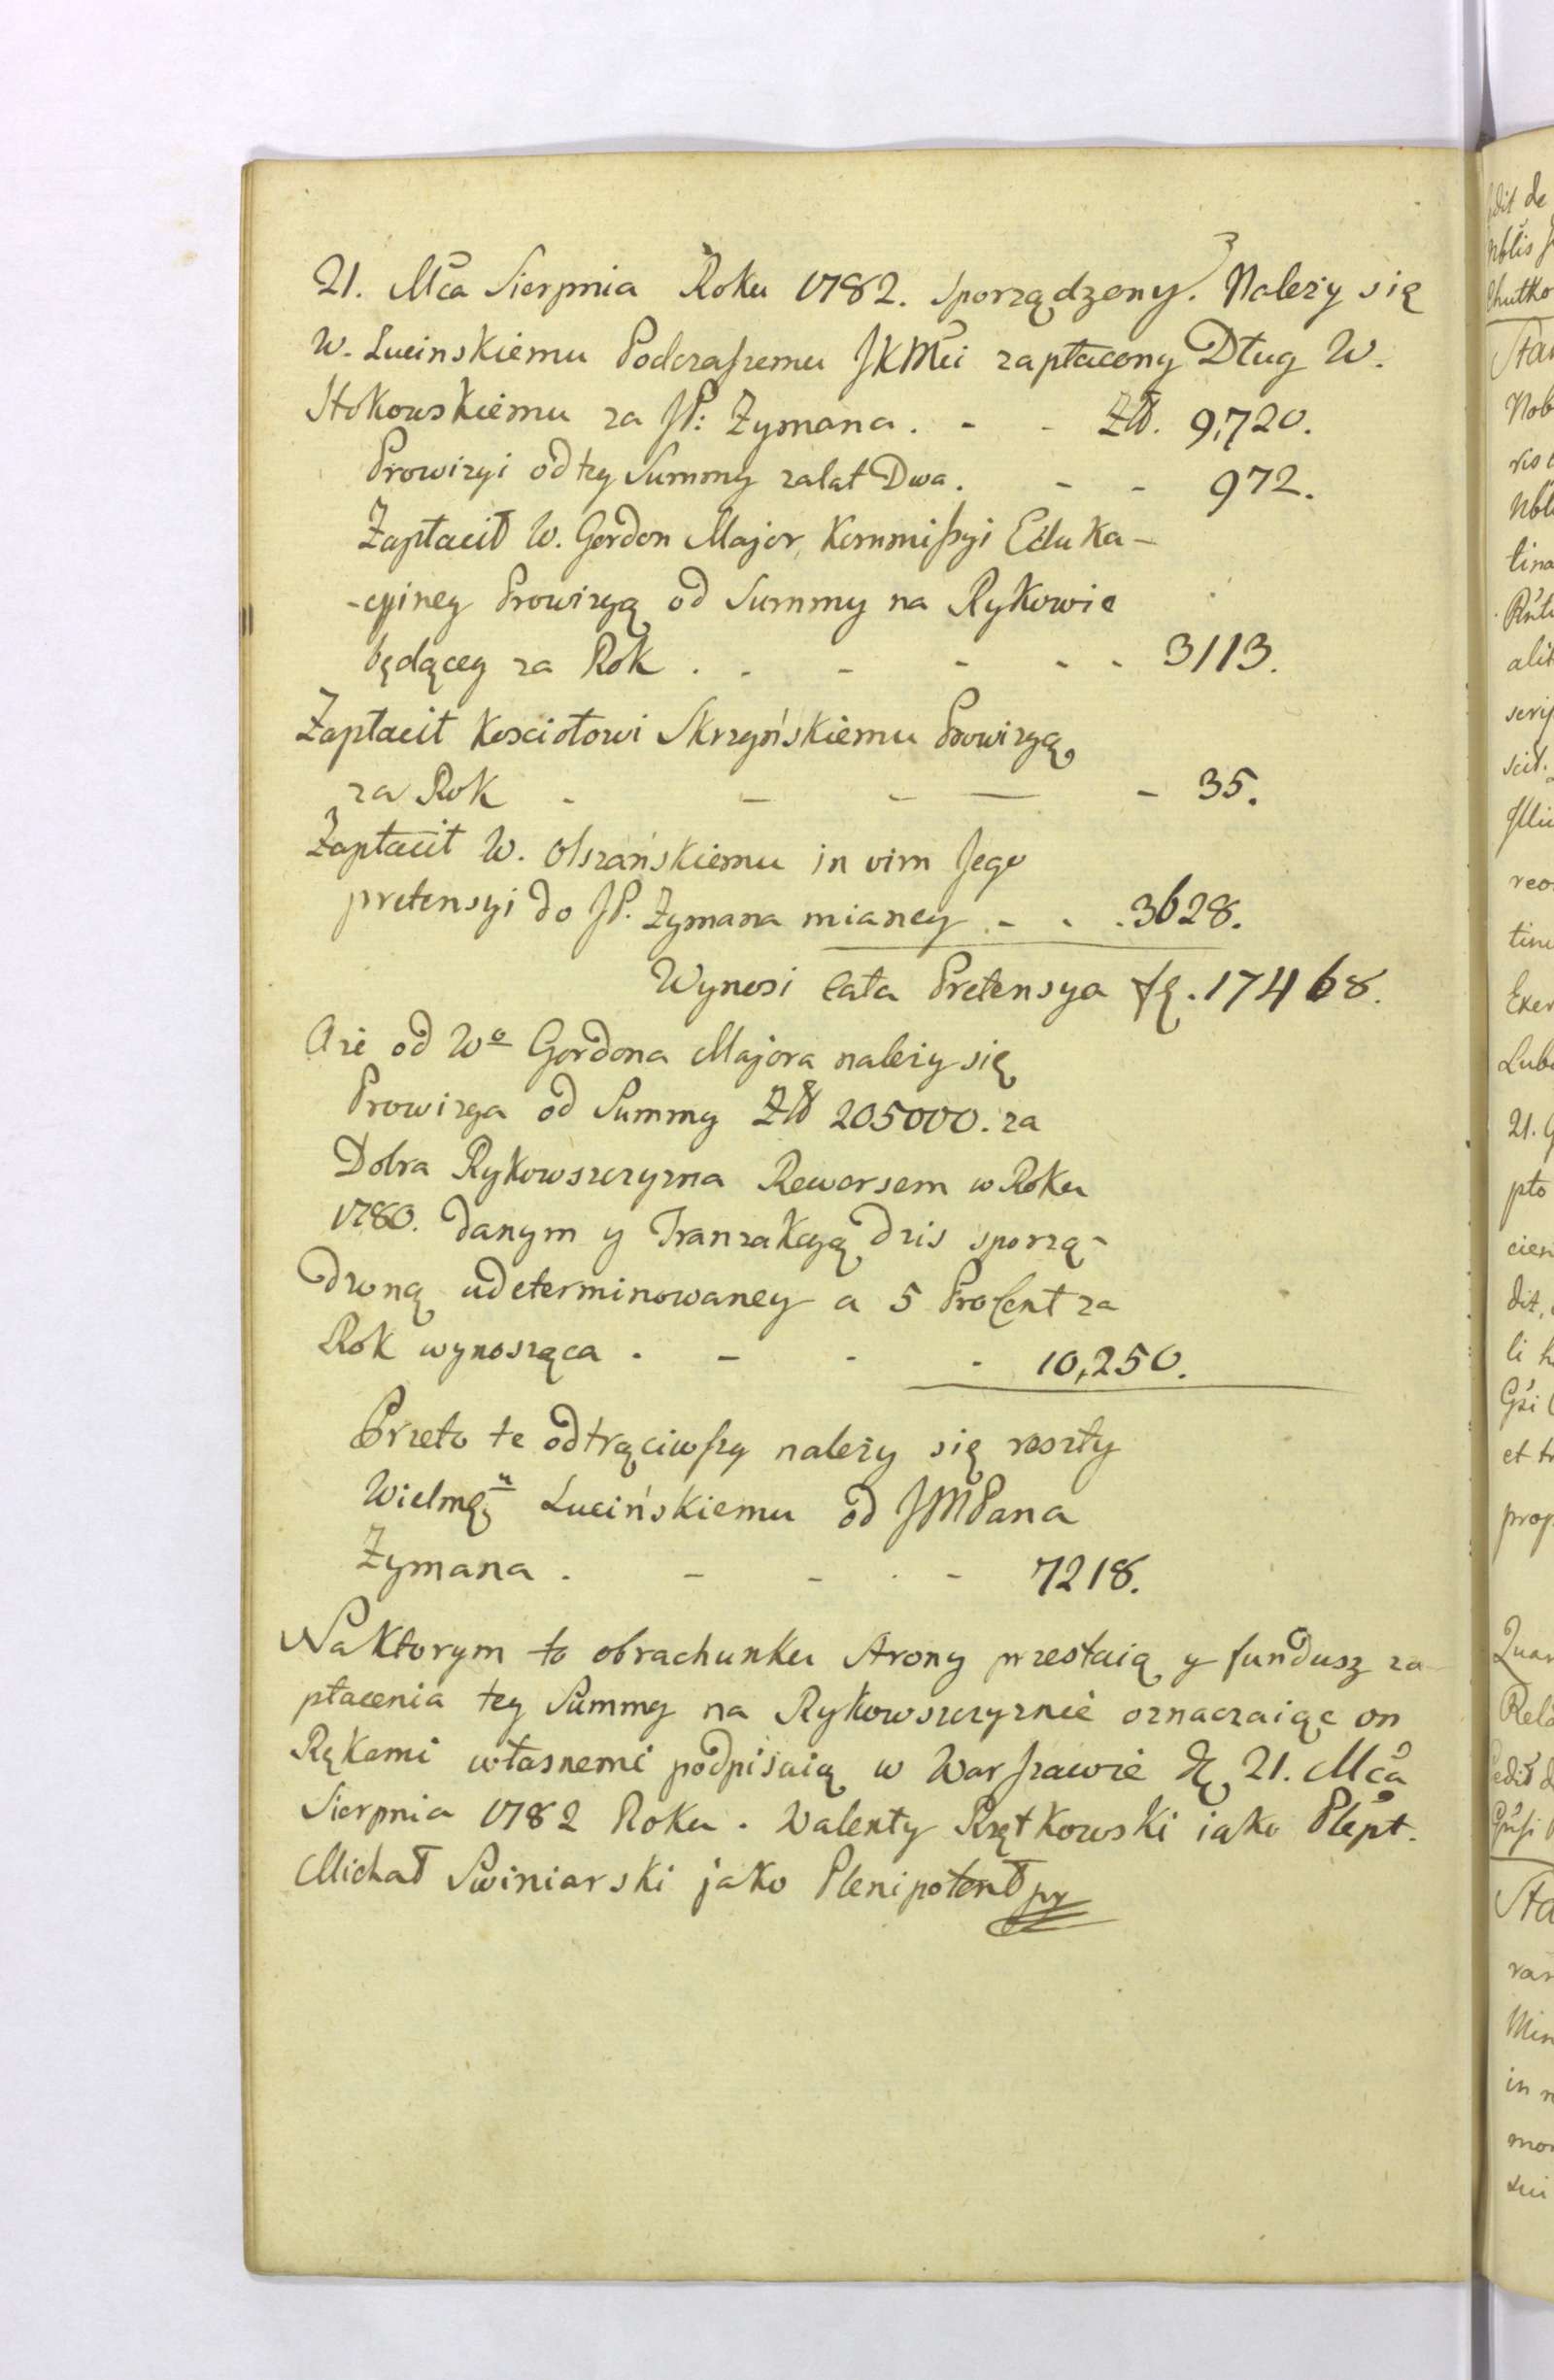 21. Mca Sierpnia Roku 1782. sporządzony. Należy się
W. Lucinskiemu Podczaszemu JKMci zapłacony Dług W.
Stokowskiemu za JP: Zymana. - - Zł. 9,720.
Prowizyi od tey Summy za lat Dwa. - - 972.
Zapłacił W. Gordon Major Kommissyi Eduka-
-cyiney Prowizyą od Summy na Rykowie
będącey za Rok . . - - - . 3113.
Zapłacił Kosciołowi Skrzyńskiemu Prowizyą
za Rok - - - - - 35.
Zapłacił W. Olszańskiemu in vim Jego
pretensyi do JP. Zymana mianey . - . . 3628.
Wynosi cała Pretensya fl. 17468.
A że od Wo Gordona Majora należy się
Prowizya od Summy Zł 205000. za
Dobra Rykowszczyzna Rewersem w Roku
1780. danym y Tranzakcyą dzis sporzą-
dzoną udeterminowaney a 5 Procent za
Rok wynosząca . - - - 10,250.
Przeto te odtrąciwszy należy się reszty
Wielmu Lucińskiemu od JMPana
Zymana . - - . - 7218.
Na ktorym to obrachunku strony przestaią y fundusz za-
płacenia tey Summy na Rykowszczyznie oznaczaiąc on
Rękami własnemi podpisuią w Warszawie D. 21. Mca
Sierpnia 1782 Roku. Walenty Rzętkowski iako Plept.
Michał Swiniarski jako Plenipotent pr